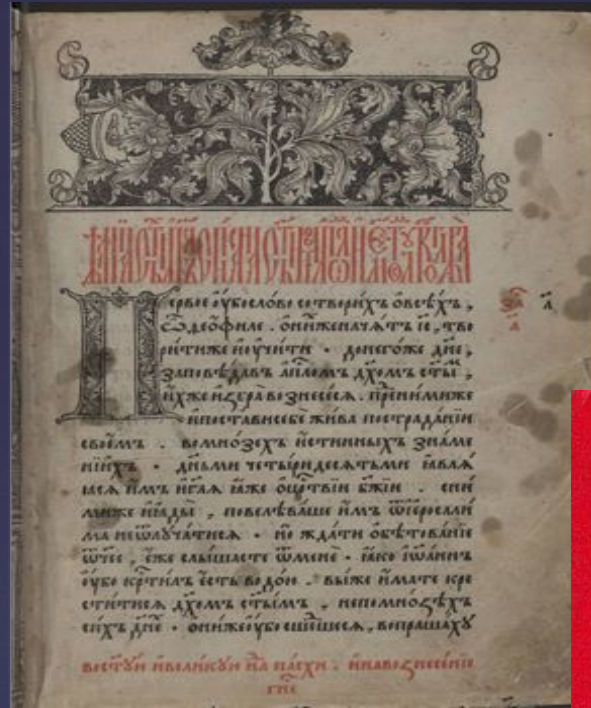 Первое оу҆бо сло́во сотвори́хъ ѻ҆ всѣ́хъ ,
ѽ ѳео́филе . ѻ҆ ни́хже нача́тъ і҆с҃ , тво
ри́тиже и҆ оу҆чи́ти . до него́же дн҃е ,
заповѣ́давъ а҆пⷭ҇ломъ дх҃омъ ст҃ы ,
и҆́хже и҆збра̀ вознесе́сѧ . пре́ ни́миже
и҆ поста́ви себѐ жи́ва по страда́нїи
свое́мъ . во мно́зехъ и҆́стинныхъ зна́ме
нїихъ . дньми четы́ридесѧтьми ꙗ҆влѧ́
ꙗсѧ и҆̀мъ и҆ гл҃ѧ ꙗ҆́же ѻ҆ црⷭ҇твїи бж҃їи . с ни́
миже и҆ ꙗ҆ды̀ , повелѣва́ше и҆̀мъ ѿ і҆ерⷭ҇али́
ма не ѿлꙋча́тисѧ . но жда́ти ѻ҆бѣтова́нїе
ѿч҃ее , е҆́же слы́шасте ѿ менѐ . ꙗ҆́ко і҆ѡ҆а́ннъ
оу҆́бо крⷭ҇ти́лъ е҆́сть водо́ю . вы́же и҆́мате кре
сти́тисѧ дх҃омъ ст҃ы́мъ , не по мно́ѕѣхъ
си́хъ дн҃е . ѻ҆ни́же оу҆́бо сше́дшесѧ , вопраша́хꙋ
во ст҃ꙋ́ю и҆ вели́кꙋю н҃лю па́схи . и҆ на вознесе́нїе
гн҃е